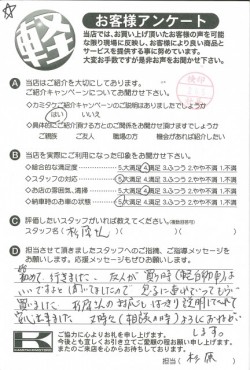 軽
お客様アンケート
当店では、お買い上げ頂いたお客様の声を可能
な限り現場に反映し、お客様により良い商品と
サービスを提供する事に努めています。
大変お手数ですが是非お声をお聞かせ下さい。
A 当店はご紹介を大切にしております。
ご紹介キャンペーンについてお聞かせ下さい。
◇カミタケご紹介キャンペーンのご説明はありましたでしょうか
はい いいえ
◇具体的にご紹介頂ける方とのご関係をお聞かせ頂けますでしょうか
ご親族 ご友人 職場の方 機会があれば紹介したい
B 当店を実際にご利用になった印象をお聞かせ下さい。
◇総合的な満足度 5大満足 4満足 3ふつう 2やや不満 1不満
◇スタッフの対応 5大満足 4満足 3ふつう 2やや不満 1不満
◇お店の雰囲気、清掃 5大満足 4満足 3ふつう 2やや不満 1不満
◇納車時のお車の状態 5大満足 4満足 3ふつう 2やや不満 1不満
C 評価したいスタッフがいれば教えてください。(複数回答可)
スタッフ名( 杉原さん )
D 担当させて頂きましたスタッフへのご指摘、ご指導メッセージを
お願いします。応援メッセージもお待ちしております。
初めて、行きました。友人が
買いました 杉原さんのお応 はっきり説明してくれて
します。
ご協力に心よりお礼を申し上げます。
今後とも宜しくお引き立てご愛顧の程お願い申し上げます。
またのご来店を心からお待ちしております。
担当( 杉原 )